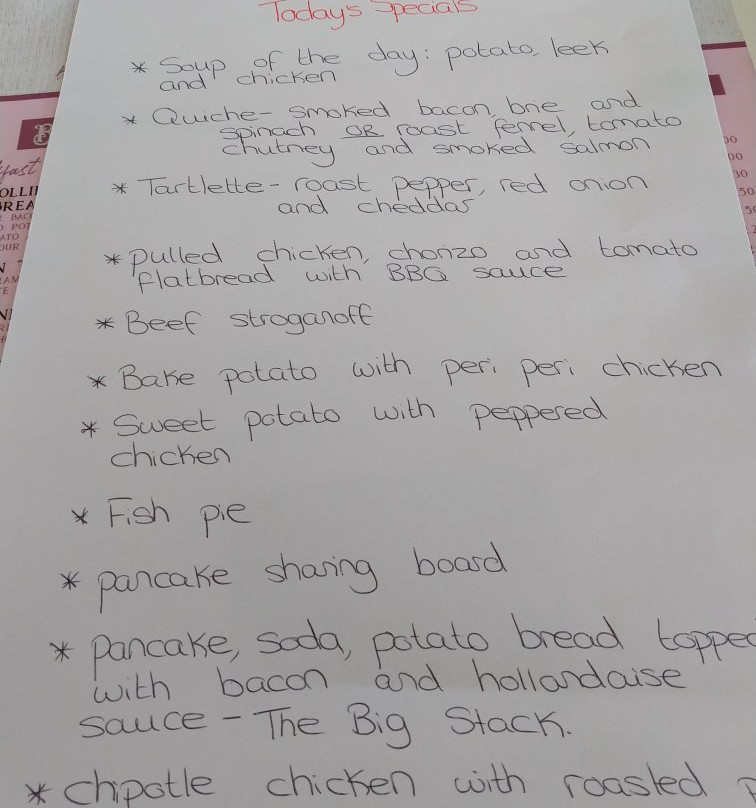 Today's Specials
* Soup of the day: potato, leek
and chicken
* Quiche - smoked bacon, brie and
spinach OR roast fennel, tomato
chutney and smoked salmon
* Tartlette - roast pepper, red onion
and cheddar
* pulled chicken, chorizo and tomato
flatbread with BBQ sauce
* Beef stroganoff
* Bake potato with peri peri chicken
* Sweet potato with peppered
chicken
* Fish pie
* pancake sharing board
* pancake, soda, potato bread topped
with bacon and hollandaise
sauce - The Big Stack.
* chipotle chicken with roasted